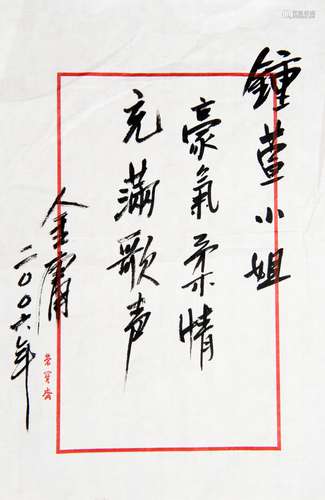 鍾萱小姐
豪氣柔情
充滿歌声
金庸
二〇〇六年
荣宝斋